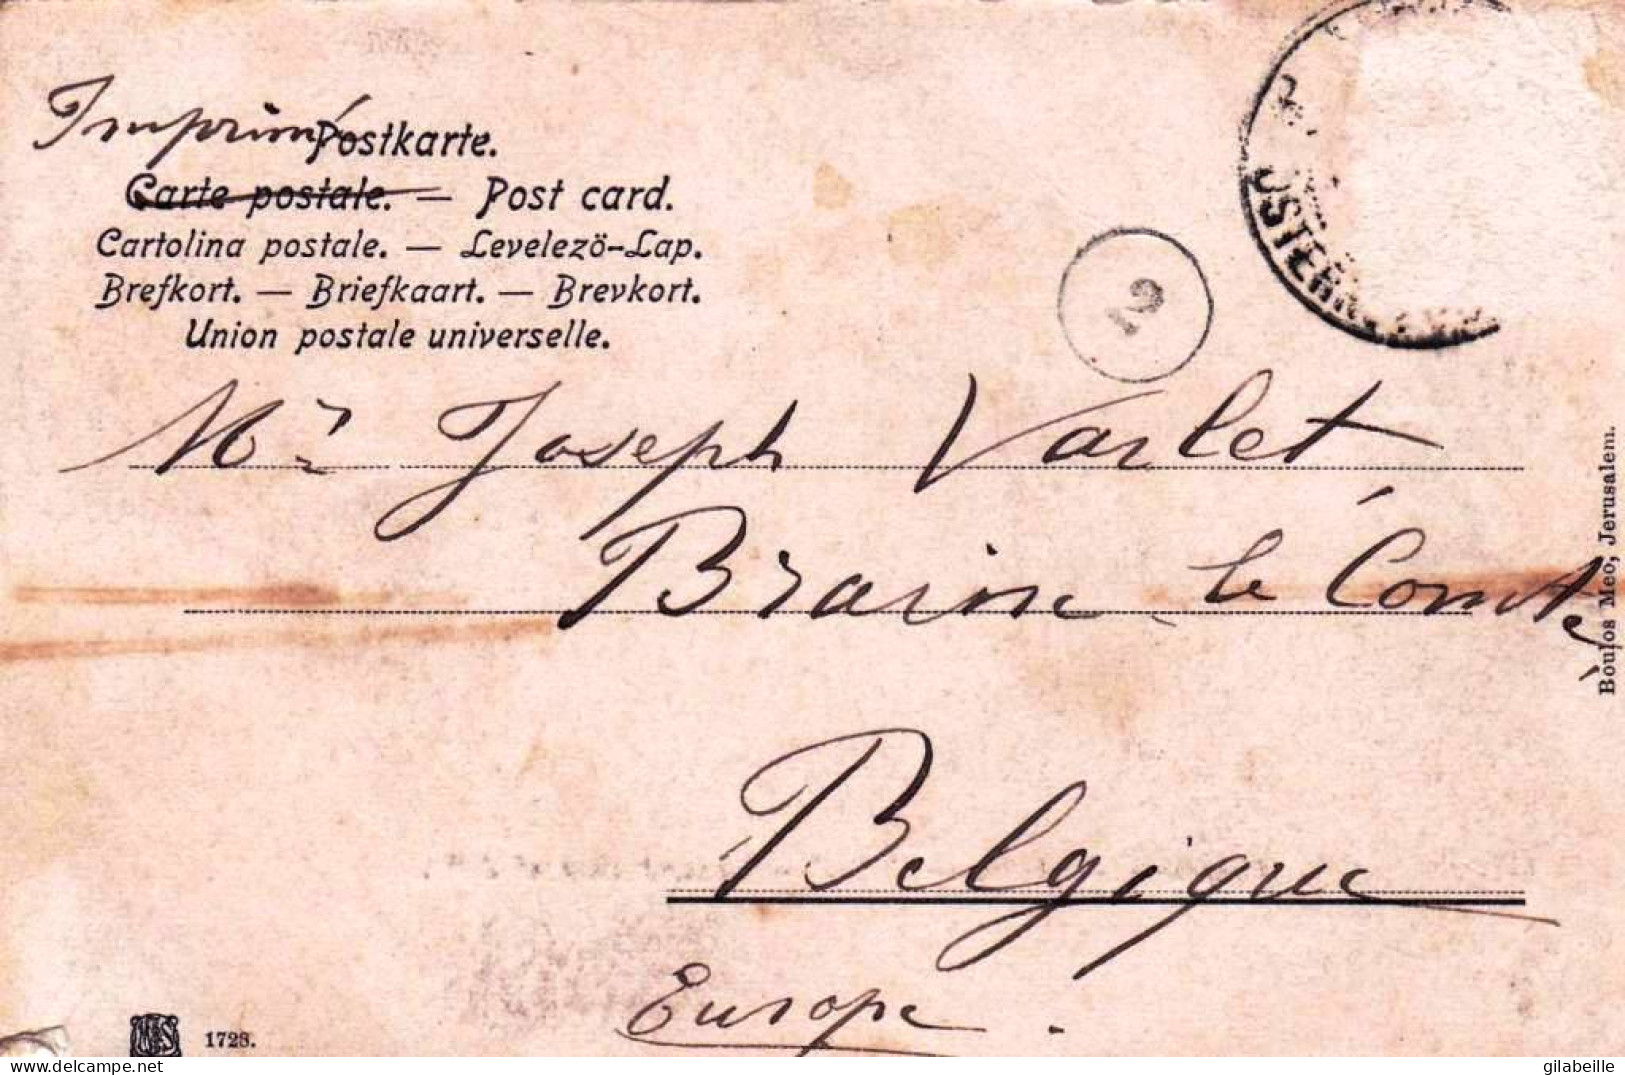 Imprimé
Postkarte.
Carte postale. — Post card.
Cartolina postale. — Levelező-Lap.
Brefkort. — Briefkaart. — Brevkort.
Union postale universelle.
2
Mr Joseph Varlet
Braine-le Comte
Belgique
Europe.
Boulos Meo, Jerusalem.
1728.
delcampe.net
gilabeille